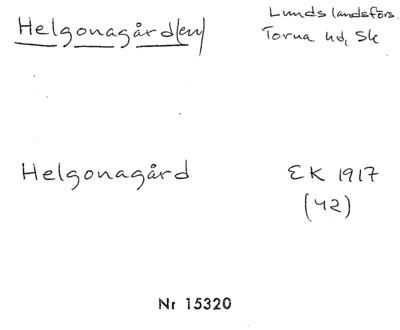 Helgonagård(en)
Lunds landsförs.
Torna hd, Sk
Helgonagård
EK 1917
(42)
Nr 15320